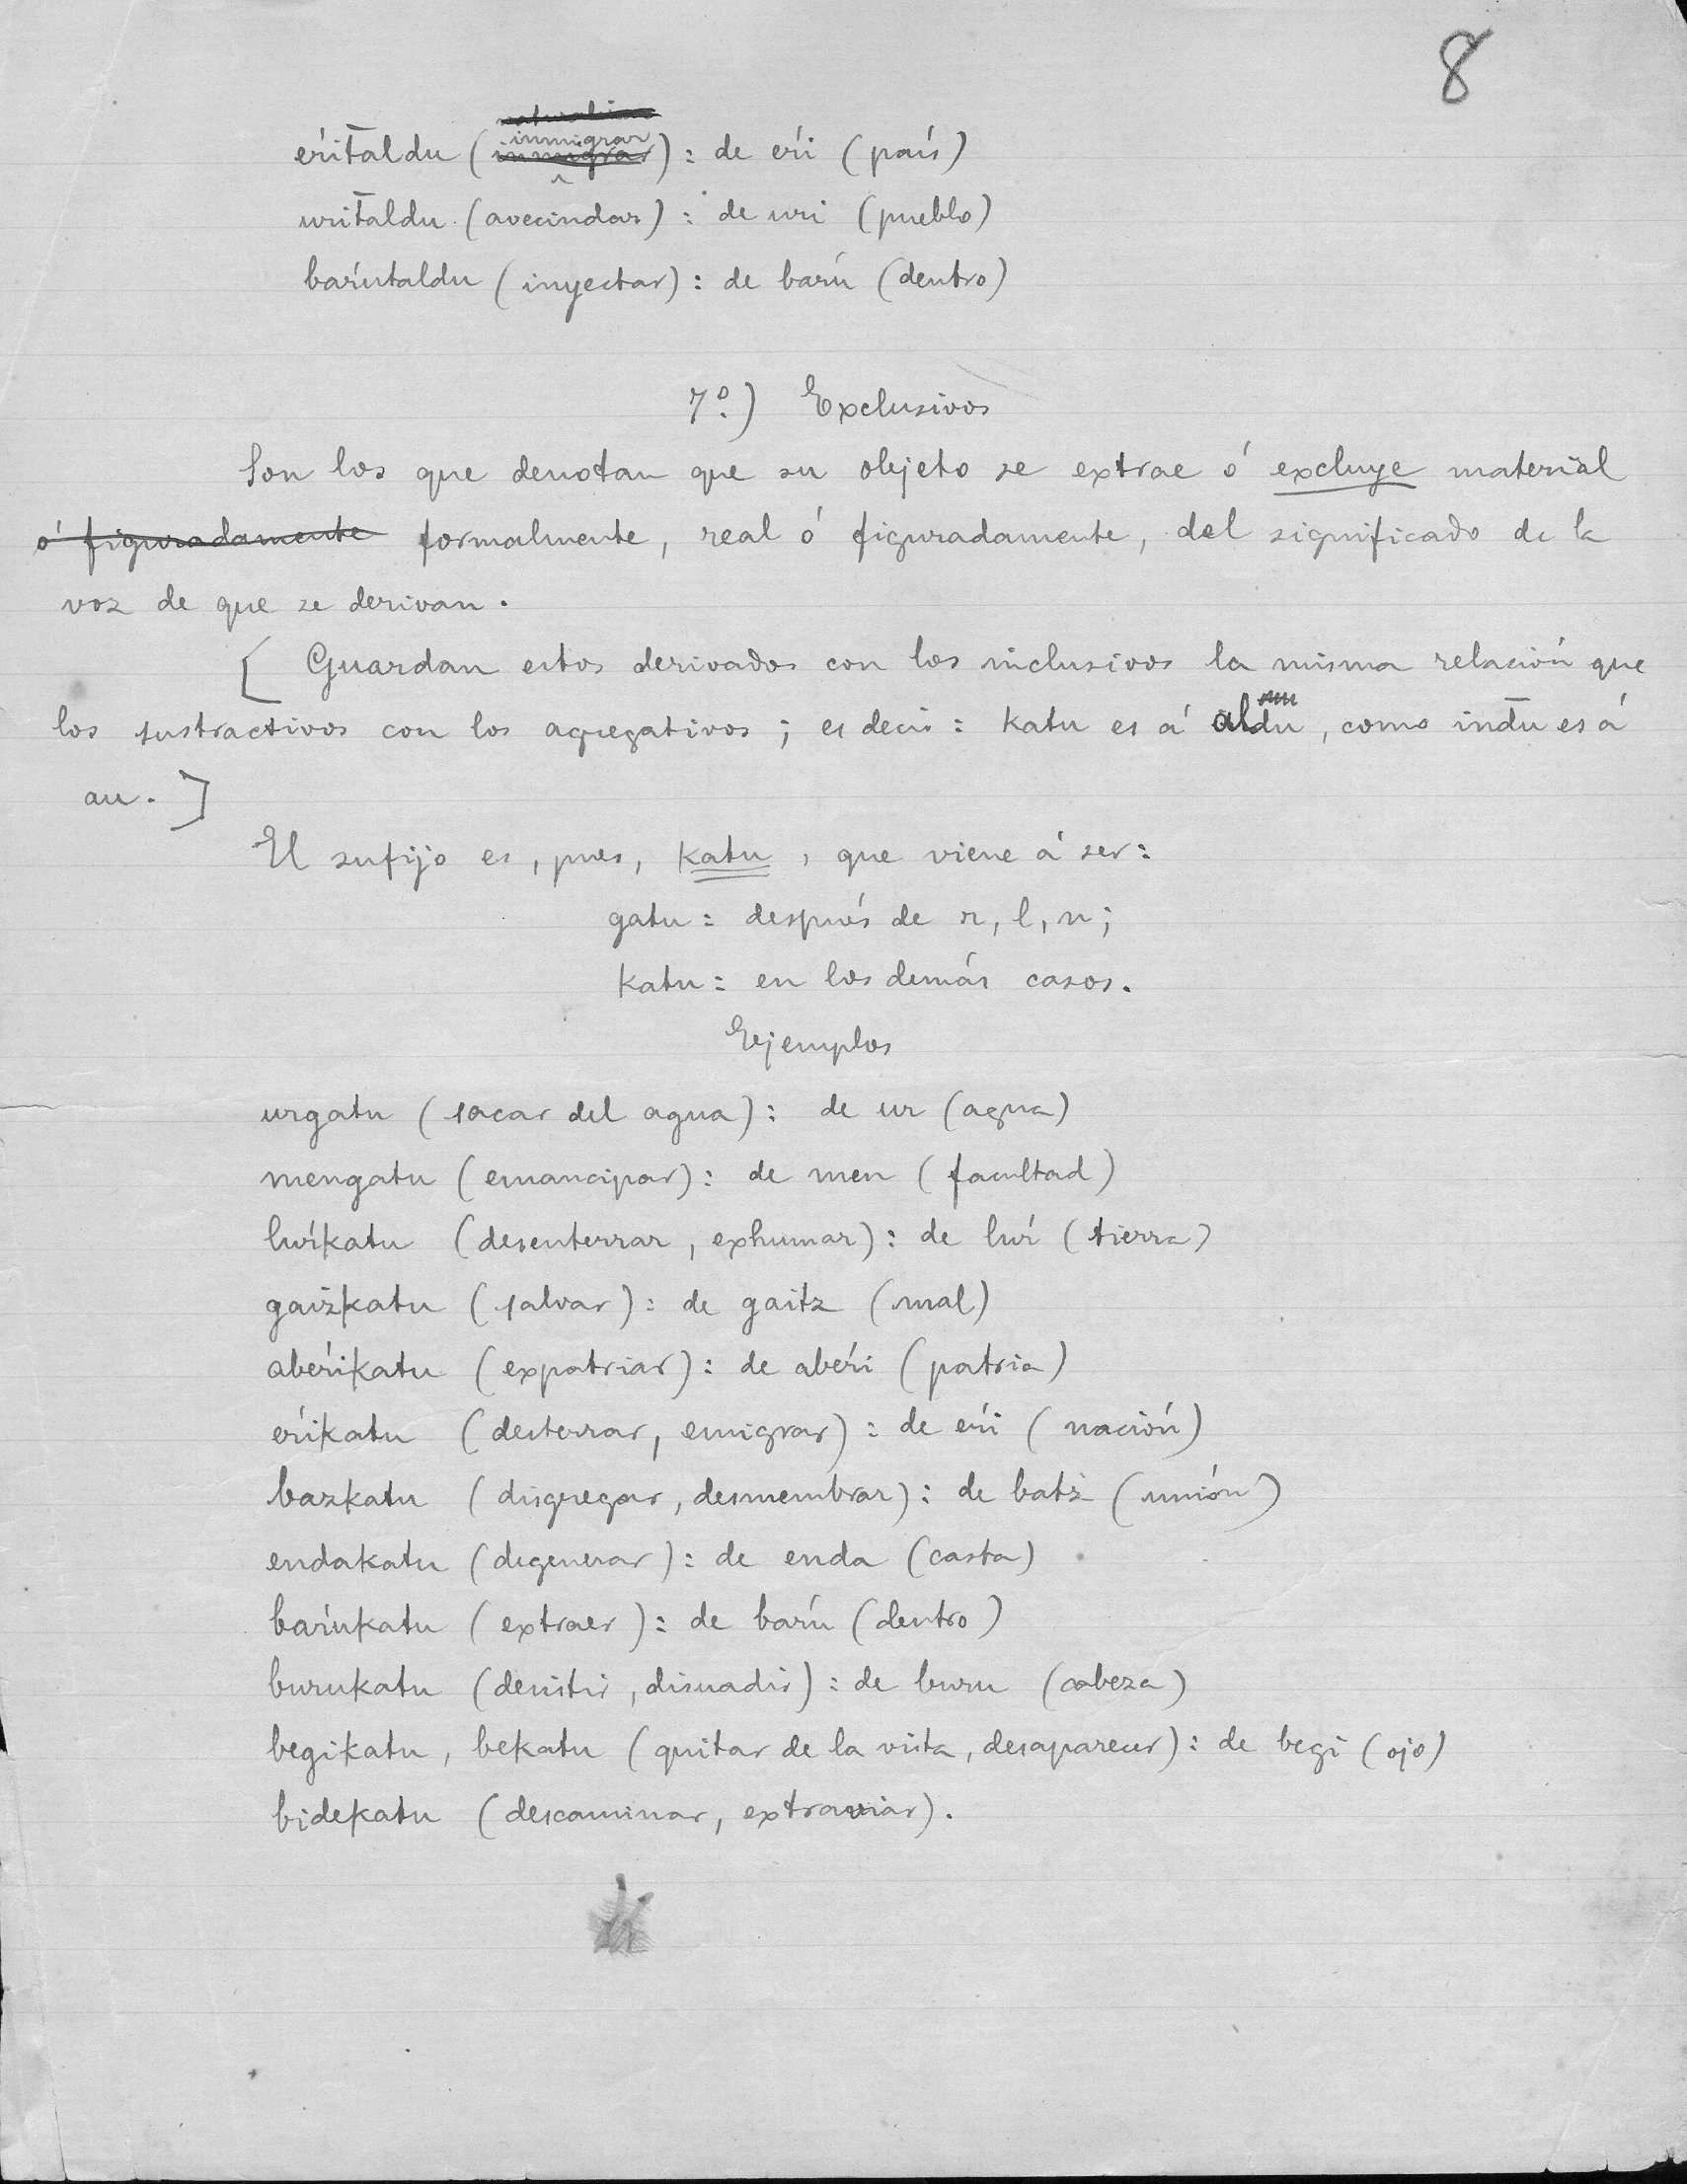 8
eŕit̄aldu (inmigrar): de eŕi (país)
urit̄aldu (avecindar): de uri (pueblo)
baŕutaldu (inyectar): de baŕu (dentro)
7º.) Exclusivos
Son los que denotan que su objeto se extrae ó excluye material
ó figuradamente formalmente, real ó figuradamente, del significado de la
voz de que se derivan.
[ Guardan estos derivados con los inclusivos la misma relación que
los sustractivos con los agregativos; es decir: katu es á aldu, como indu es á
au. ]
El sufijo es, pues, katu, que viene á ser:
gatu: después de r, l, n;
katu: en los demás casos.
Ejemplos
urgatu (sacar del agua): de ur (agua)
mengatu (emancipar): de men (facultad)
luŕkatu (desenterrar, exhumar): de luŕ (tierra)
gaizkatu (salvar): de gaitz (mal)
abeŕikatu (expatriar): de abeŕi (patria)
eŕikatu (desterrar, emigrar): de eŕi (nación)
bazkatu (disgregar, desmembrar): de batz (unión)
endakatu (degenerar): de enda (casta)
baŕukatu (extraer): de baŕu (dentro)
burukatu (desistir, disuadir): de buru (cabeza)
begikatu, bekatu (quitar de la vista, desaparecer): de begi (ojo)
bidekatu (descaminar, extraviar).